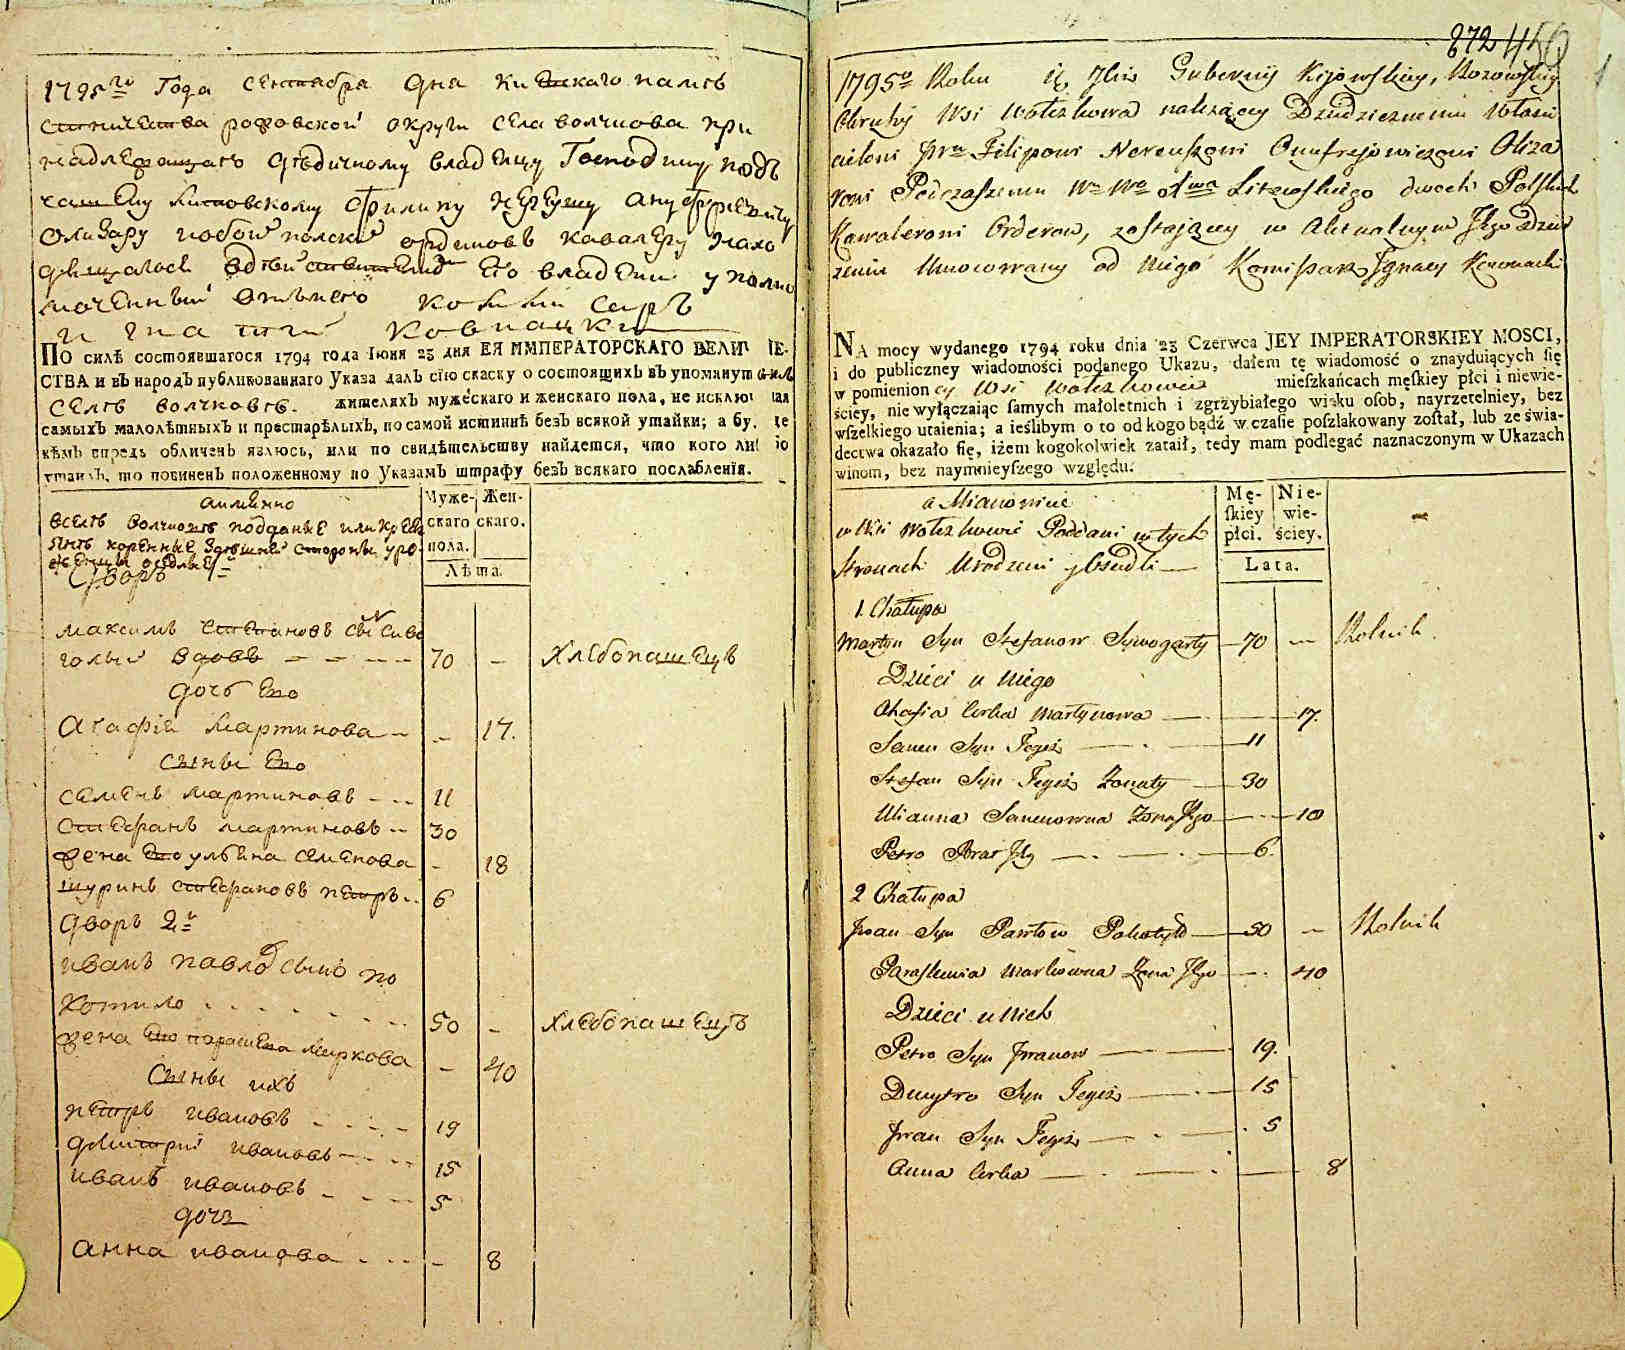 1795го Года сентября дня киевскаго намѣс
тничества рожовской округи села волчкова при
надлежащаго дѣдичному владелцу Господину подъ
чашему литовскому Филипу нереушу ануфреевичу
Олизару обоихъ полскихъ ординовъ кавалеру нахо
дящагося въ действителномъ его владении уполно
моченный отънего комисаръ
игнатий ковнацкий
ПО силѣ состоявшагося 1794 года Іюня 23 дня ЕЯ ИМПЕРАТОРСКАГО ВЕЛИЧЕ-
СТВА и въ народъ публикованнаго Указа далъ сію скаску о состоящихъ въ упомянутомъ
селѣ волчковѣ. жителяхъ мужескаго и женскаго пола, не исключая
самыхъ малолѣтныхъ и престарѣлыхъ, по самой истиннѣ безъ всякой утайки; а буде
кѣмъ впредь обличенъ явлюсь, или по свидѣтельству найдется, что кого либо
утаилъ, то повиненъ положенному по Указамъ штрафу безъ всякаго послабленія.
аимянно
Муже- Жен-
скаго скаго.
пола.
Лѣта.
вселѣ волчковѣ подданые или крестья
коренные здѣшней стороны уро
женцы
Дворъ 1й
максимъ степановъ снъ сиво
голый вдовъ 70 – хлебопашецъ
дочь ево
Агафія мартинова – 17.
сыны ево
семенъ мартиновъ 11
Стефанъ мартиновъ 30
жена ево ульяна семенова – 18
шуринъ стефановъ петръ 6
дворъ 2й
иванъ павловъ сынъ по
хотило 50 – хлебопашецъ
жена ево параскева маркова – 40
Сыны ихъ
петръ ивановъ 19
дмитрий ивановъ 15
иванъ ивановъ 5
дочь
анна иванова – 8
872 456
1795o Roku Gubernij Kijowskiey, Rozowskiey
Okruhy Wsi Wołczkowa należącey Dziedzicznemu Włości
cielowi Filipowi Nereuszowi Onufrejowiczowi Oliza
rowi Podczaszemu Wo Litewskiego dwoch Polskich
Kawalerowi Orderow, zostającey w Aktualnym Jego Dzier
żeniu Umocowany od Niego Komisarz Ignacy Kownacki
NA mocy wydanego 1794 roku dnia 23 Czerwca JEY IMPERATORSKIEY MOSCI,
i do publiczney wiadomości podanego Ukazu, dałem tę wiadomość o znayduiących ſię
w pomienioney Wsi Wołczkowie mieſzkańcach męſkiey płci i niewie-
ściey, nie wyłączaiąc ſamych małoletnich i zgrzybiałego wieku oſob, nayrzetelniey, bez
wſzelkiego utaienia; a ieślibym o to od kogo bądź w czaſie poſzlakowany został, lub ze świa-
dectwa okazało ſię, iżem kogokolwiek zataił, tedy mam podlegać naznaczonym w Ukazach
winom, bez naymnieyſzego względu.
a Mianowicie
Mę- Nie-
ſkiey wie-
płci. ściey.
Lata.
w Wsi Wołczkowie Poddani w tych
Stronach Urodzeni y Osiedli
1. Chałupa
Martyn Syn Stefanow Sywogarty 70 — Rolnik.
Dzieci u Niego
Ahafia Corka Martynowa 17.
Semen Syn Tegoż 11
Stefan Syn Tegoż Żonaty 30
Ulianna Semenowna Żona Jego 18
Petro Brat Jey 6.
2 Chałupa
Jwan Syn Pawłow Pohotyło 50 – Rolnik
Paraskewia Markowna Żona Jego 40
Dzieci u Nich
Petro Syn Jwanow 19.
Dmytro Syn Tegoż 15
Jwan Syn Tegoż 5
Anna Corka 8